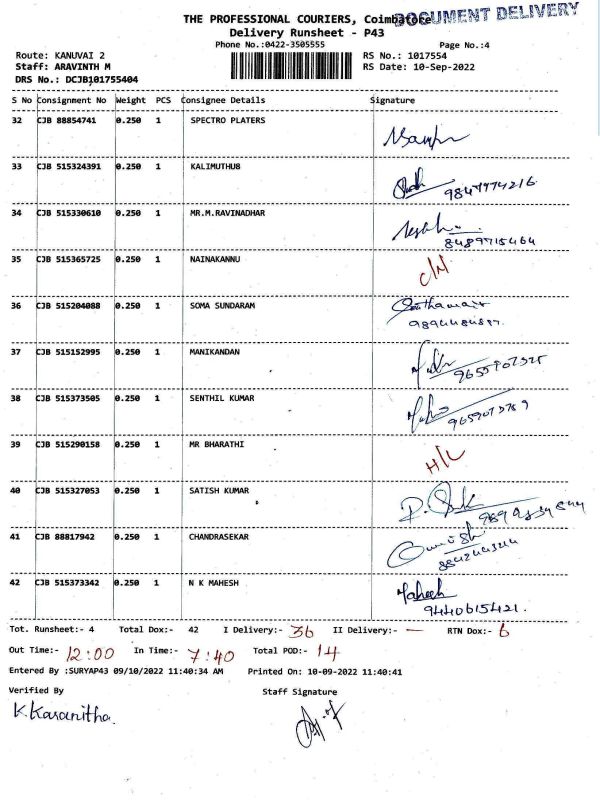 THE PROFESSIONAL COURIERS, Coimbatore
DOCUMENT DELIVERY
Delivery Runsheet - P43
Phone No.:0422-3505555 Page No.:4
Route: KANUVAI 2 RS No.: 1017554
Staff: ARAVINTH M RS Date: 10-Sep-2022
DRS No.: DCJB101755404
S No Consignment No Weight PCS Consignee Details Signature
32 CJB 88854741 0.250 1 SPECTRO PLATERS
33 CJB 515324391 0.250 1 KALIMUTHUB
34 CJB 515330610 0.250 1 MR.M.RAVINADHAR
8489715464
35 CJB 515365725 0.250 1 NAINAKANNU
36 CJB 515204088 0.250 1 SOMA SUNDARAM
37 CJB 515152995 0.250 1 MANIKANDAN
38 CJB 515373505 0.250 1 SENTHIL KUMAR
39 CJB 515290158 0.250 1 MR BHARATHI
H/L
40 CJB 515327053 0.250 1 SATISH KUMAR
41 CJB 88817942 0.250 1 CHANDRASEKAR
42 CJB 515373342 0.250 1 N K MAHESH
Mahesh
9440615421.
Tot. Runsheet:- 4 Total Dox:- 42 I Delivery:- 36 II Delivery:- — RTN Dox:- 6
Out Time:- 12:00 In Time:- 7:40 Total POD:- 14
Entered By :SURYAP43 09/10/2022 11:40:34 AM Printed On: 10-09-2022 11:40:41
Verified By Staff Signature
K.Kavanitha.